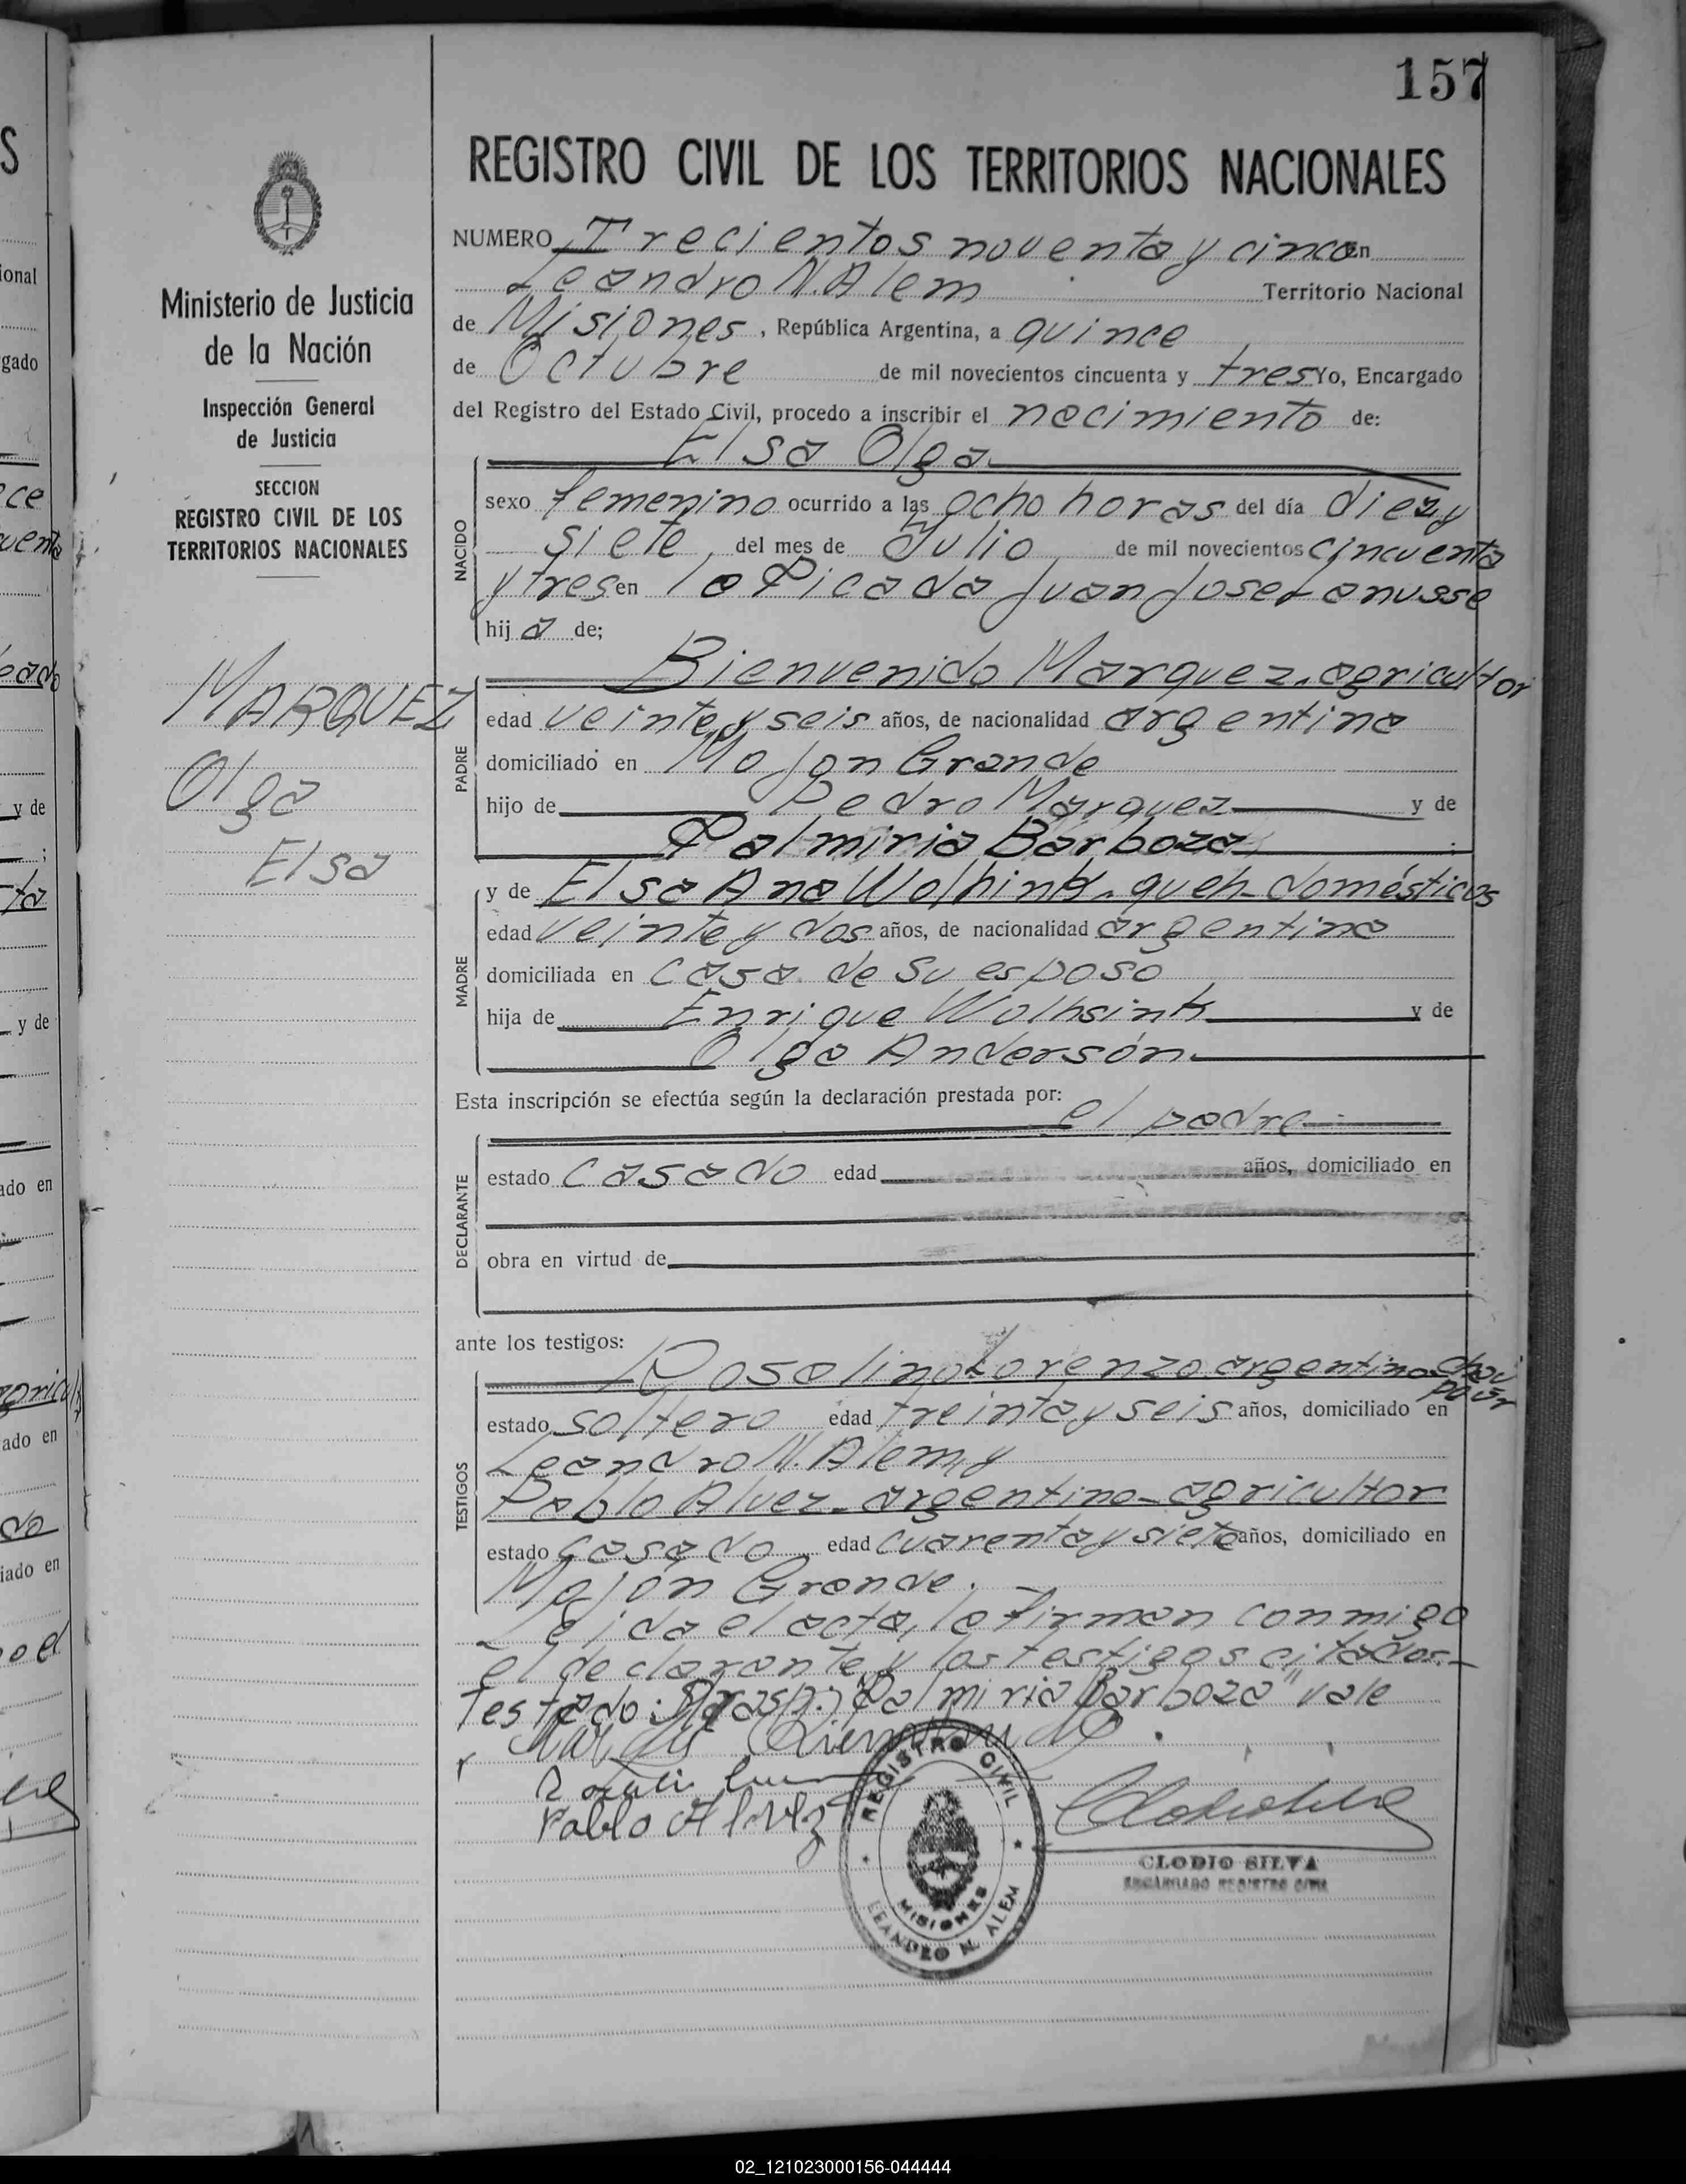 157
REGISTRO CIVIL DE LOS TERRITORIOS NACIONALES
Ministerio de Justicia
de la Nación
Inspección General
de Justicia
SECCION
REGISTRO CIVIL DE LOS
TERRITORIOS NACIONALES
MARQUEZ
Olga
Elsa
NUMERO Trecientos noventa y cinco En
Leandro N. Alem Territorio Nacional
de Misiones, República Argentina, a quince
de Octubre de mil novecientos cincuenta y tres Yo, Encargado
del Registro del Estado Civil, procedo a inscribir el nacimiento de:
Elsa Olga
NACIDO
sexo femenino ocurrido a las ocho horas del día diez y
siete, del mes de Julio de mil novecientos cincuenta
y tres en la Picada Juan Jose Lanusse
hij a de;
Bienvenido Marquez. agricultor
PADRE
edad veinte y seis años, de nacionalidad argentina
domiciliado en Mojon Grande
hijo de Pedro Marquez y de
Palmiria Barboza ;
MADRE
y de Elsa Ana Wolhink. queh. domésticos
edad veinte y dos años, de nacionalidad argentina
domiciliada en casa de su esposo
hija de Enrique Wolhsink y de
Olga Andersón.
Esta inscripción se efectúa según la declaración prestada por:
el padre
DECLARANTE
estado casado edad años, domiciliado en
obra en virtud de
ante los testigos:
TESTIGOS
Rosalino Lorenzo argentino
estado soltero edad treinta y seis años, domiciliado en
Leandro N. Alem, y
Pablo Alvez - argentino - agricultor
estado casado edad cuarenta y siete años, domiciliado en
Mojón Grande.
Leida el acta, la firman conmigo
el declarante y los testigos citados.-
Testado: Palmiria Barboza" vale
Pablo Alvez
REGISTRO CIVIL
MISIONES
LEANDRO N. ALEM
CLODIO SILVA
ENCARGADO REGISTRO CIVIL
02_121023000156-044444